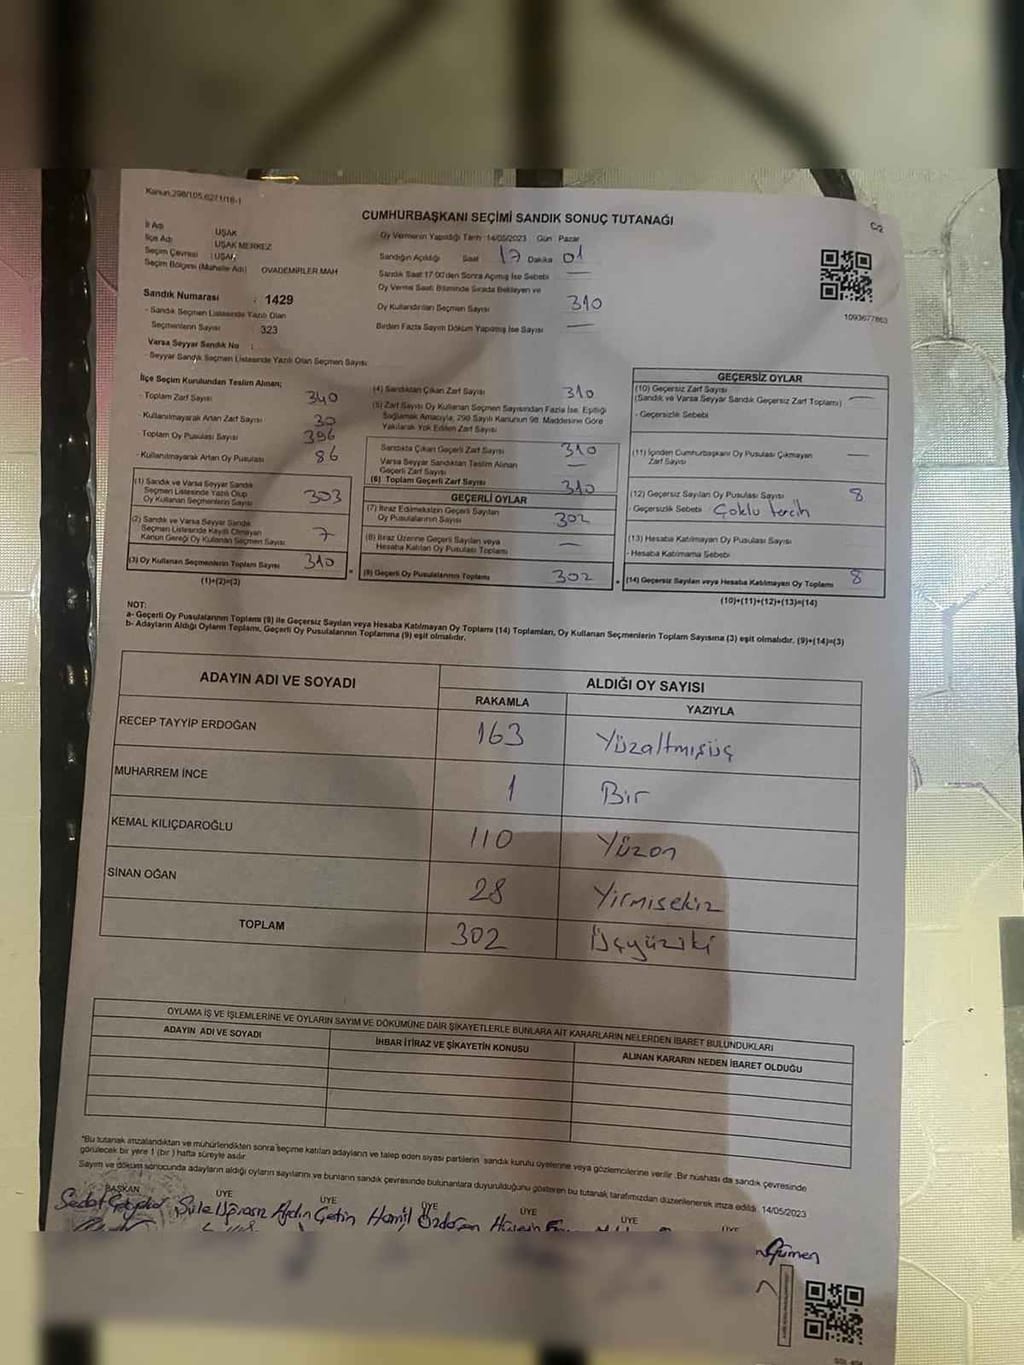 Kanun:298/105,6271/18-1
CUMHURBAŞKANI SEÇİMİ SANDIK SONUÇ TUTANAĞI
C/2
İl Adı UŞAK
İlçe Adı UŞAK MERKEZ
Seçim Çevresi : UŞAK
Seçim Bölgesi (Mahalle Adı) OVADEMİRLER.MAH
Oy Vermenin Yapıldığı Tarih :14/05/2023 Gün Pazar
Sandığın Açıldığı Saat 17 Dakika 01
Sandık Saat 17:00'den Sonra Açılmış İse Sebebi —
Oy Verme Saati Bitiminde Sırada Bekleyen ve
Oy Kullandırılan Seçmen Sayısı 310
Birden Fazla Sayım Döküm Yapılmış İse Sayısı —
1093677863
Sandık Numarası : 1429
- Sandık Seçmen Listesinde Yazılı Olan
Seçmenlerin Sayısı 323
Varsa Seyyar Sandık No :
- Seyyar Sandık Seçmen Listesinde Yazılı Olan Seçmen Sayısı:
İlçe Seçim Kurulundan Teslim Alınan;
- Toplam Zarf Sayısı 340
- Kullanılmayarak Artan Zarf Sayısı 30
- Toplam Oy Pusulası Sayısı 396
- Kullanılmayarak Artan Oy Pusulası 86
(1) Sandık ve Varsa Seyyar Sandık
Seçmen Listesinde Yazılı Olup
Oy Kullanan Seçmenlerin Sayısı 303
(2) Sandık ve Varsa Seyyar Sandık
Seçmen Listesinde Kayıtlı Olmayan
Kanun Gereği Oy Kullanan Seçmen Sayısı 7
(3) Oy Kullanan Seçmenlerin Toplam Sayısı 310
(1)+(2)=(3)
(4) Sandıktan Çıkan Zarf Sayısı 310
(5) Zarf Sayısı Oy Kullanan Seçmen Sayısından Fazla İse, Eşitliği
Sağlamak Amacıyla, 298 Sayılı Kanunun 98. Maddesine Göre
Yakılarak Yok Edilen Zarf Sayısı
Sandıkta Çıkan Geçerli Zarf Sayısı 310
Varsa Seyyar Sandıktan Teslim Alınan
Geçerli Zarf Sayısı —
(6) Toplam Geçerli Zarf Sayısı 310
GEÇERLİ OYLAR
(7) İtiraz Edilmeksizin Geçerli Sayılan
Oy Pusulalarının Sayısı 302
(8) İtiraz Üzerine Geçerli Sayılan veya
Hesaba Katılan Oy Pusulası Toplamı —
(9) Geçerli Oy Pusulalarının Toplamı 302
GEÇERSİZ OYLAR
(10) Geçersiz Zarf Sayısı
(Sandık ve Varsa Seyyar Sandık Geçersiz Zarf Toplamı) —
- Geçersizlik Sebebi
(11) İçinden Cumhurbaşkanı Oy Pusulası Çıkmayan
Zarf Sayısı —
(12) Geçersiz Sayılan Oy Pusulası Sayısı 8
- Geçersizlik Sebebi Çoklu tercih
(13) Hesaba Katılmayan Oy Pusulası Sayısı
- Hesaba Katılmama Sebebi
(14) Geçersiz Sayılan veya Hesaba Katılmayan Oy Toplamı 8
(10)+(11)+(12)+(13)=(14)
NOT:
a- Geçerli Oy Pusulalarının Toplamı (9) ile Geçersiz Sayılan veya Hesaba Katılmayan Oy Toplamı (14) Toplamları, Oy Kullanan Seçmenlerin Toplam Sayısına (3) eşit olmalıdır. (9)+(14)=(3)
b- Adayların Aldığı Oyların Toplamı, Geçerli Oy Pusulalarının Toplamına (9) eşit olmalıdır.
ADAYIN ADI VE SOYADI
ALDIĞI OY SAYISI
RAKAMLA YAZIYLA
RECEP TAYYİP ERDOĞAN 163 Yüzaltmışüç
MUHARREM İNCE 1 Bir
KEMAL KILIÇDAROĞLU 110 Yüzon
SİNAN OĞAN 28 Yirmisekiz
TOPLAM 302 Üçyüziki
OYLAMA İŞ VE İŞLEMLERİNE VE OYLARIN SAYIM VE DÖKÜMÜNE DAİR ŞİKAYETLERLE BUNLARA AİT KARARLARIN NELERDEN İBARET BULUNDUKLARI
ADAYIN ADI VE SOYADI İHBAR İTİRAZ VE ŞİKAYETİN KONUSU ALINAN KARARIN NEDEN İBARET OLDUĞU
*Bu tutanak imzalandıktan ve mühürlendikten sonra seçime katılan adayların ve talep eden siyasi partilerin sandık kurulu üyelerine veya gözlemcilerine verilir. Bir nüshası da sandık çevresinde
görülecek bir yere 1 (bir) hafta süreyle asılır.
Sayım ve döküm sonucunda adayların aldığı oyların sayılarını ve bunların sandık çevresinde bulunanlara duyurulduğunu gösteren bu tutanak tarafımızdan düzenlenerek imza edildi. 14/05/2023
BAŞKAN ÜYE ÜYE ÜYE ÜYE ÜYE ÜYE
Sedat Şule Aydın Çetin Hamil Özdoğan Hüseyin